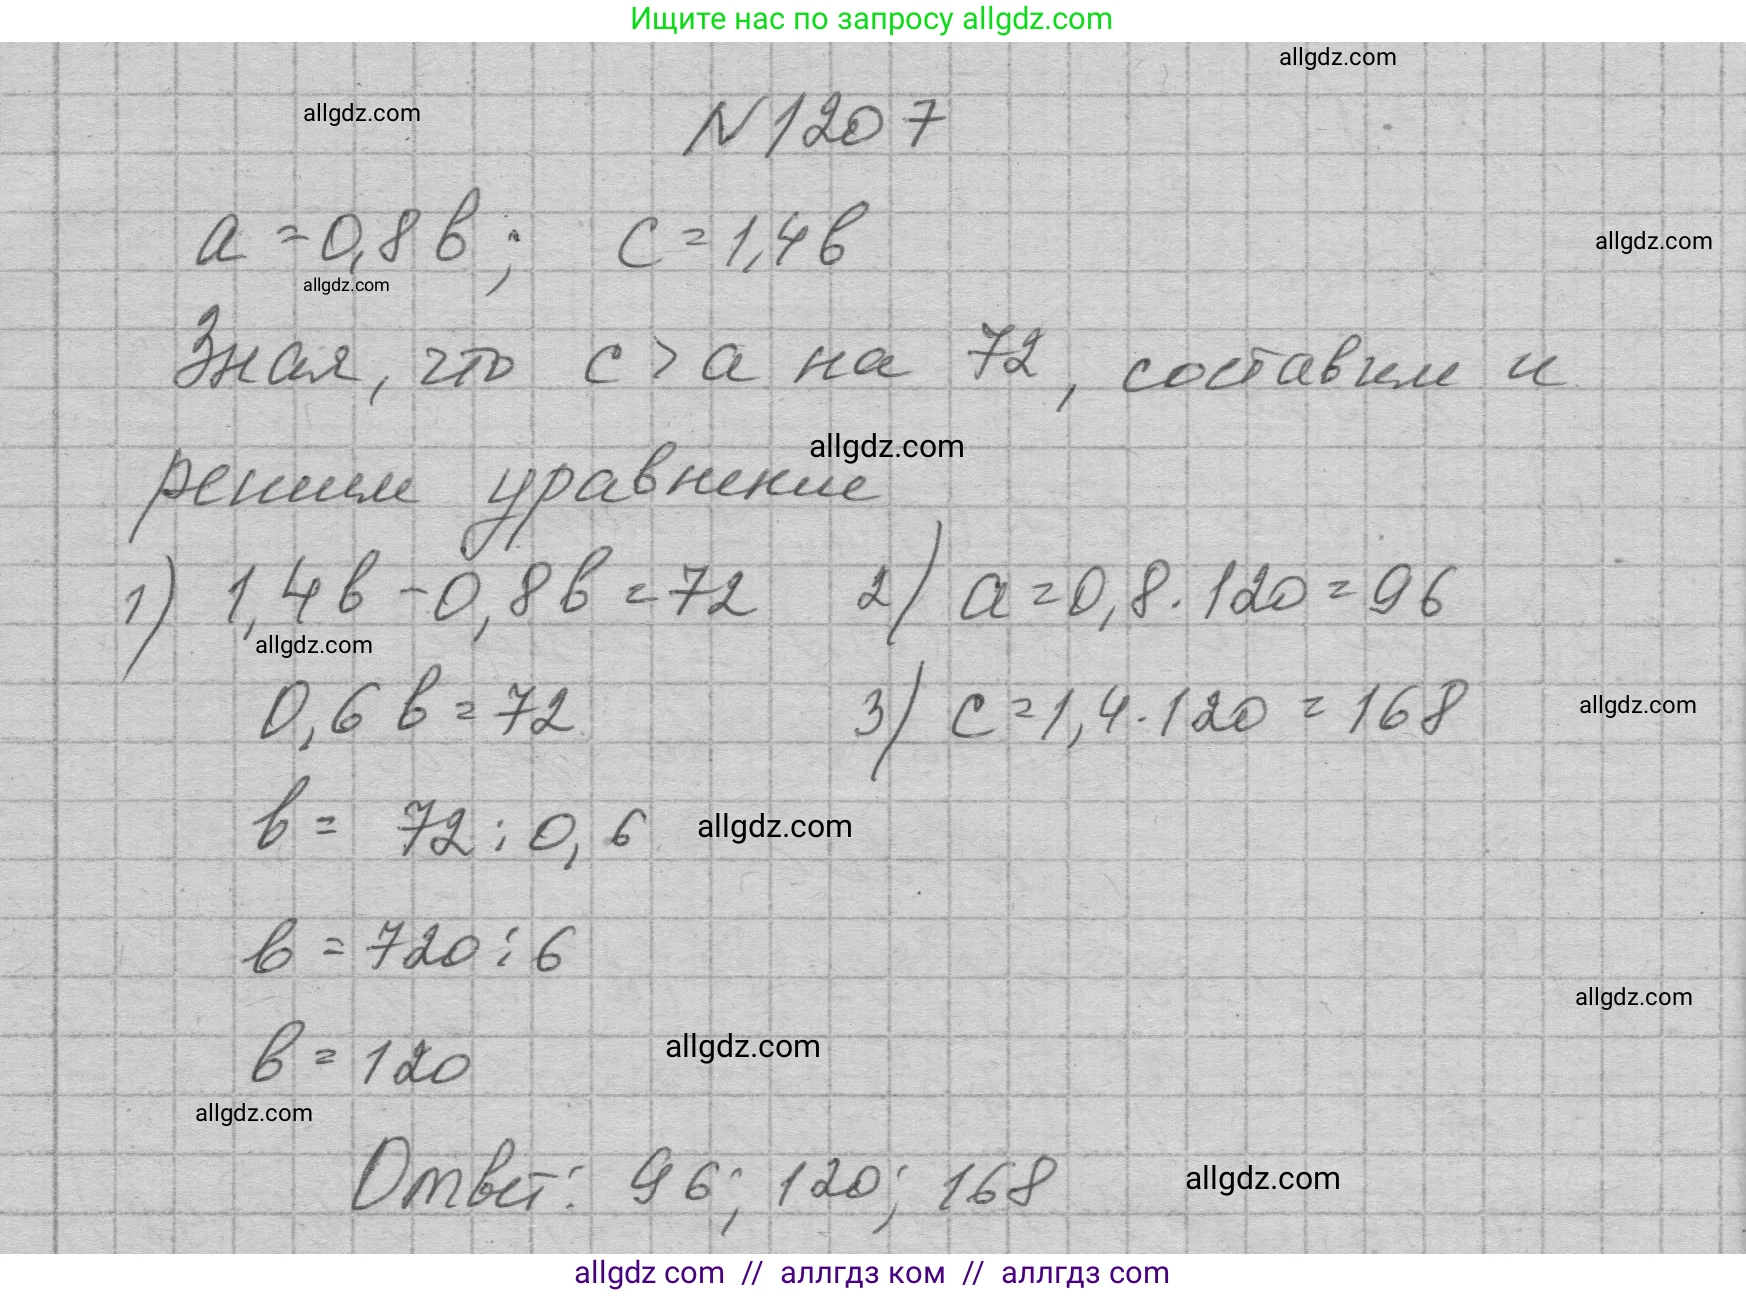 Ищите нас по запросу allgdz.com
allgdz.com
allgdz.com
N1207
a = 0,8в; c = 1,4в
allgdz.com
allgdz.com
Зная, что c > a на 72, составим и
allgdz.com
решим уравнение
1) 1,4в - 0,8в = 72 2) a = 0,8 · 120 = 96
allgdz.com
0,6в = 72 3) c = 1,4 · 120 = 168
allgdz.com
в = 72 : 0,6
allgdz.com
в = 720 : 6
allgdz.com
в = 120
allgdz.com
allgdz.com
Ответ: 96; 120; 168
allgdz.com
allgdz com // аллгдз ком // аллгдз com